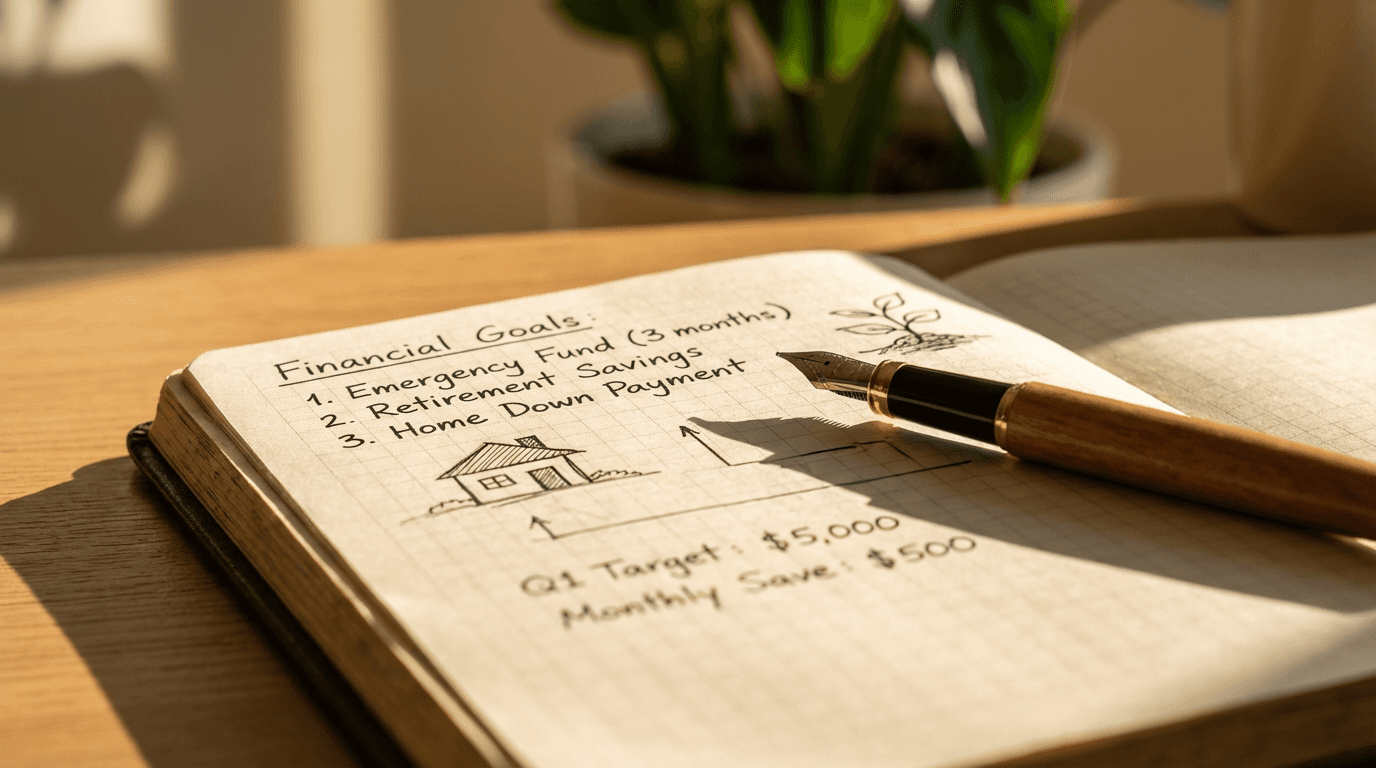 Financial Goals:
1. Emergency Fund (3 months)
2. Retirement Savings
3. Home Down Payment
Q1 Target: $5,000
Monthly Save: $500